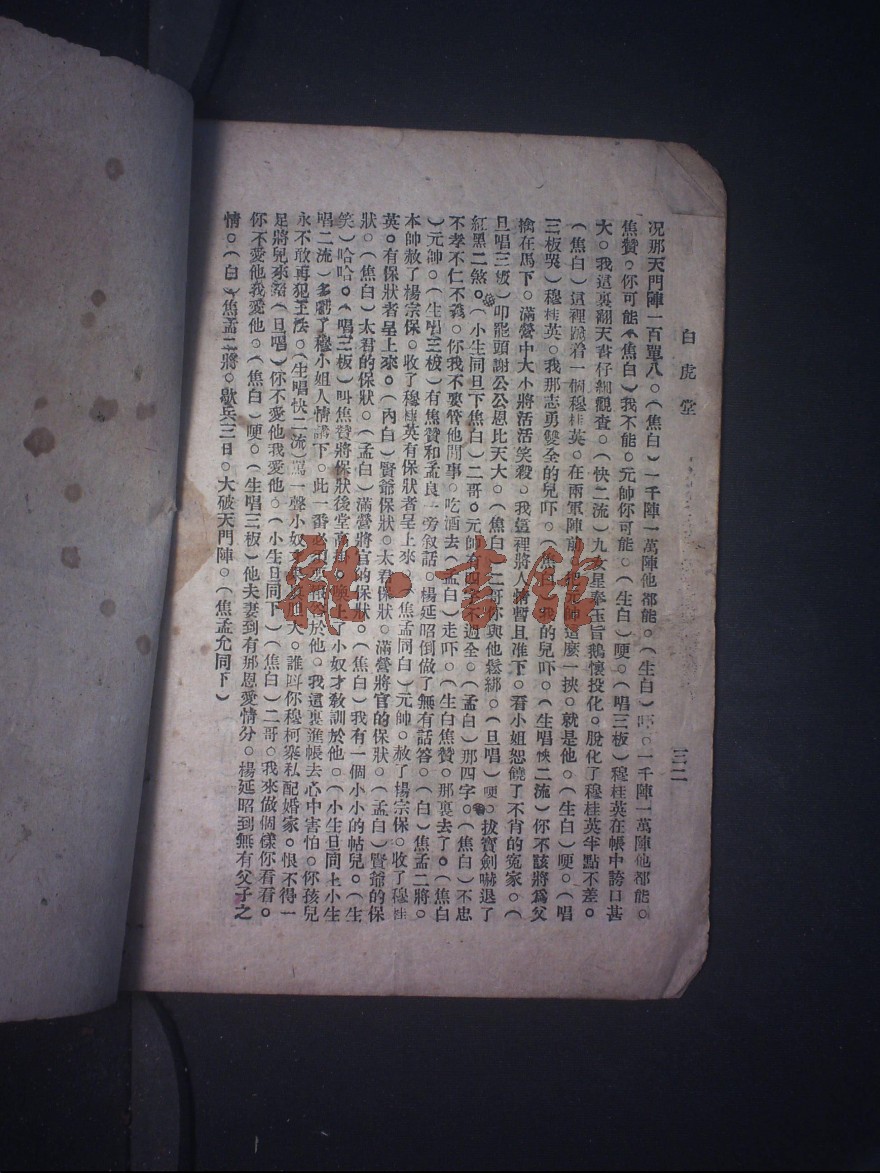 白虎堂
三二
况那天門陣一百單八。(焦白)一千陣一萬陣他都能。(生白)吓。一千陣一萬陣他都能。
焦贊。你可能(焦白)我不能。元帥你可能。(生白)哽。(唱三板)穆桂英在帳中誇口甚
大。我這裏翻天書仔細觀查。(快二流)九女星奉玉旨鵝懷投化。脫化了穆桂英半點不差。
(焦白)這裡跪着一個穆桂英。在兩軍陣前把元帥這麽一挾。就是他。(生白)哽。(唱
三板哭)穆桂英。我那志勇雙全的兒吓。(焦白)我的兒吓。(生唱快二流)你不該將爲父
擒在馬下。滿營中大小將活活笑殺。我這裡將人情暫且准下。看小姐恕饒了不肖的寃家。(
旦唱三板)叩罷頭謝公公恩比天大。(焦白)二哥你與他鬆綁。(旦唱)哽。拔寶劍嚇退了
紅黑二煞。(小生同旦下焦白)二哥。元帥有四字不過全。(孟白)那四字。(焦白)不忠
不孝不仁不義。你我不要管他閒事。吃酒去(孟白)走吓。(生白焦贊。那裏去了。(焦白
)元帥。(生唱三板)有焦贊和孟良一旁叙話。楊延昭倒做了無有話答。(白)焦孟二將。
本帥赦了楊宗保。收了穆桂英有保狀者呈上來。(焦孟同白)元帥。赦了楊宗保。收了穆桂
英。有保狀者呈上來。(內白)賢爺保狀。太君保狀。滿營將官的保狀。(孟白)賢爺的保
狀。(焦白)太君的保狀。(孟白)滿營將官的保狀。(焦白)我有一個小小的帖兒。(生
笑)哈哈。(唱三板)叫焦贊將保狀後堂 。喚上了小奴才敎訓於他。(小生旦同上小生
唱二流)多虧了穆小姐人情講下。此一番必 於他。我這裏進帳去心中害怕。你孩兒
永不敢再犯王法。(生唱快二流)駡一聲小奴才 胆大。誰叫你穆柯寨私配婚家。恨不得一
足將兒來踢(旦唱)你不愛他我愛他。(小生旦同下)(焦白)二哥。我來做個樣你看看。
你不愛他我愛他。(焦白)哽。(生唱三板)他夫妻到有那恩愛情分。楊延昭到無有父子之
情。(白)焦孟二將。歇兵三日。大破天門陣。(焦孟允同下)
雜·書館